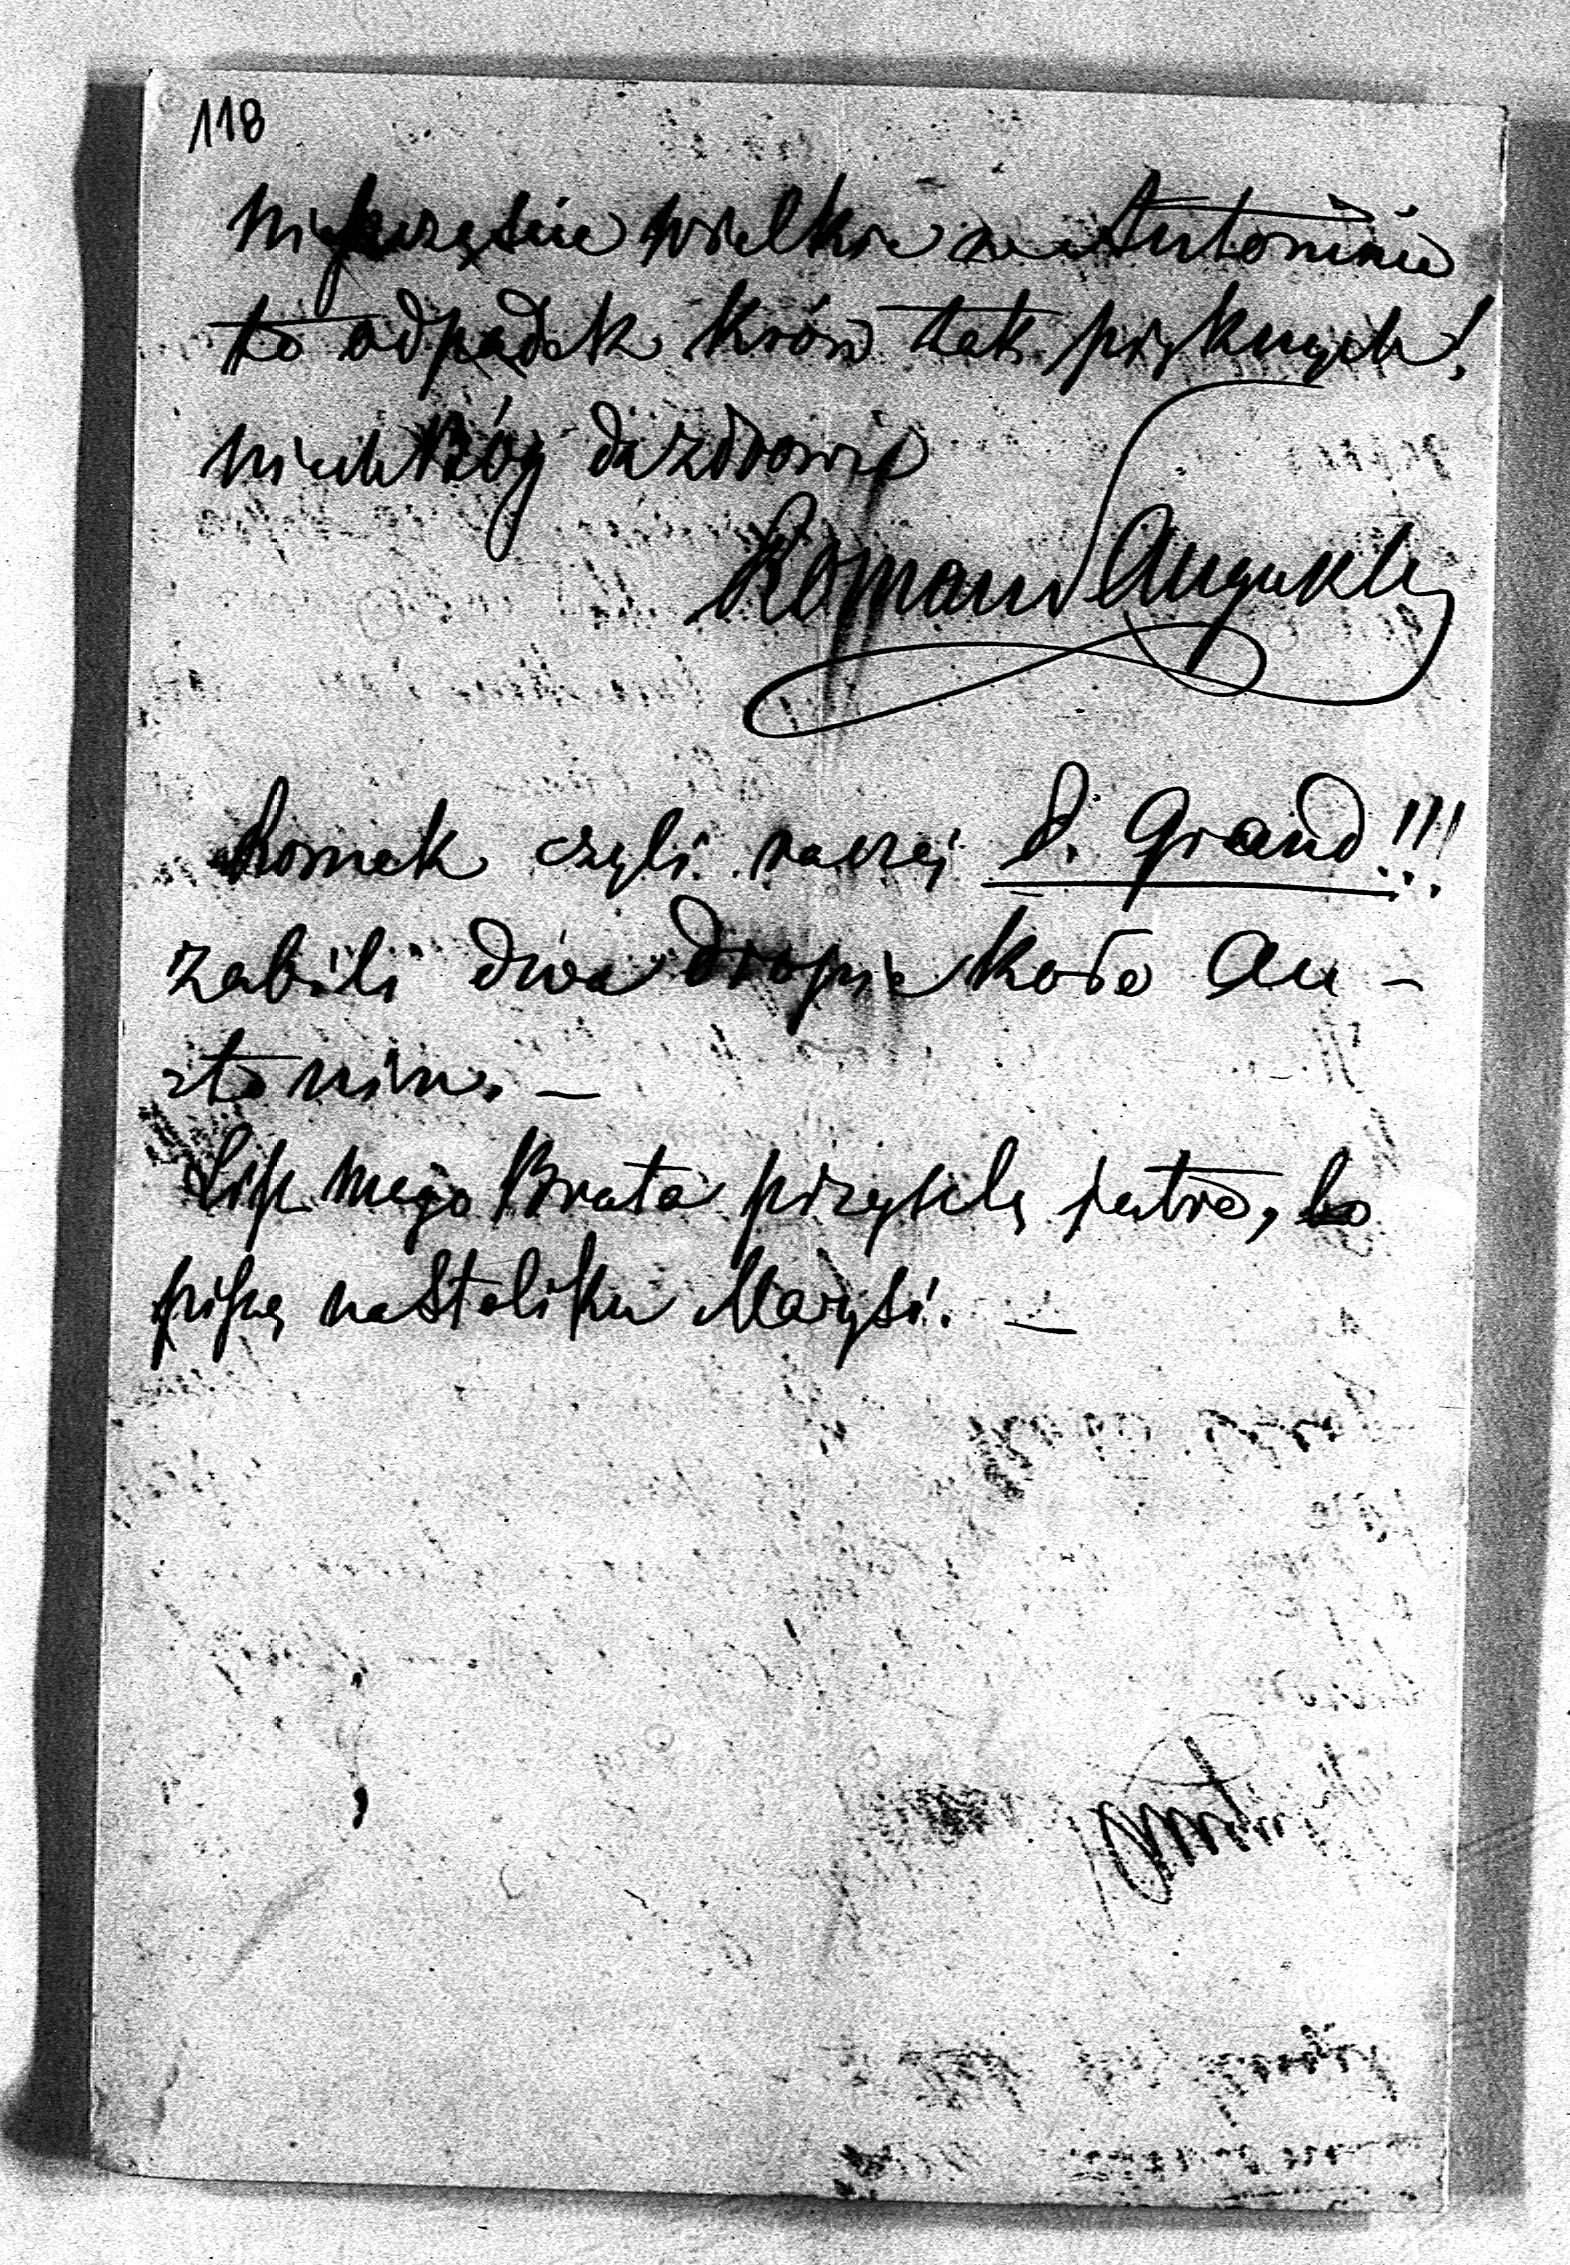 118
Nieszczęście wielkie w Antoninie
to odpadek krów tak pięknych!
niech Bóg da zdrowie
Roman
Romek czyli raczej S. Grand!!!
zabili dwa dropie koło An-
tonin. —
List mego Brata przyszlę jutro, bo
piszę na stoliku Marysi. —